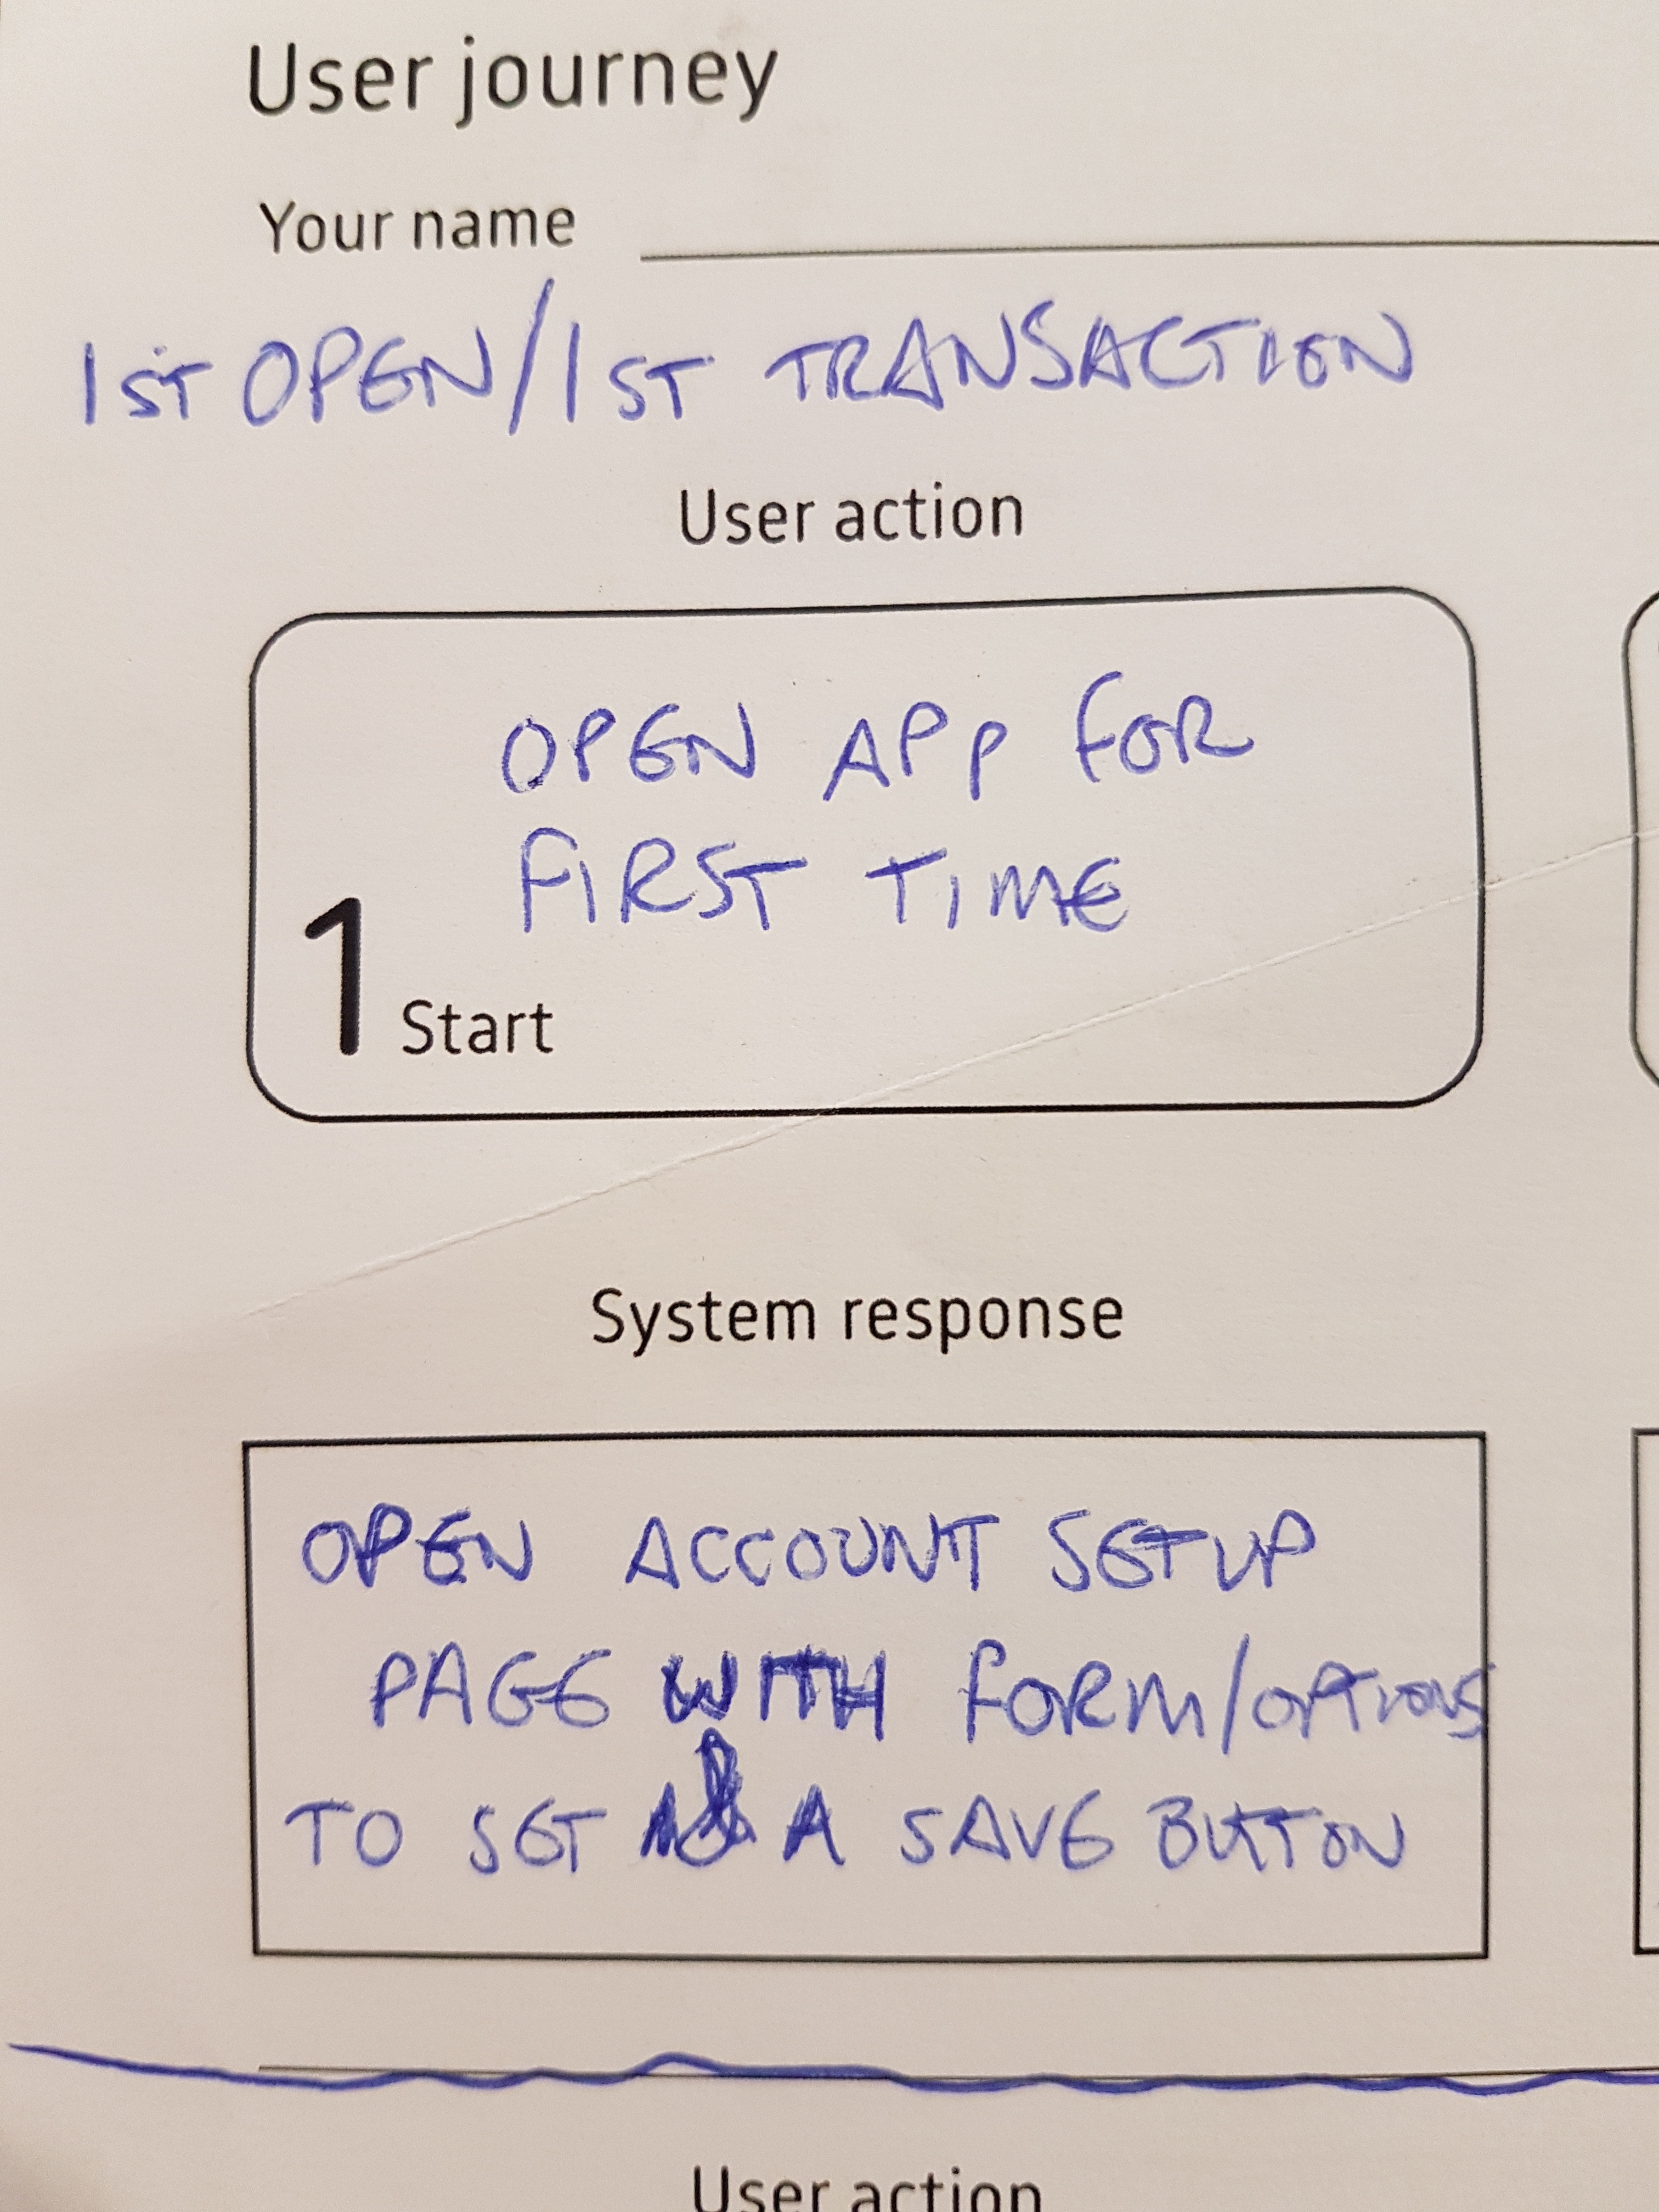 User journey
Your name
1ST OPEN/1ST TRANSACTION
User action
OPEN APP FOR
FIRST TIME
1 Start
System response
OPEN ACCOUNT SETUP
PAGE WITH FORM/OPTIONS
TO SET & A SAVE BUTTON
User action